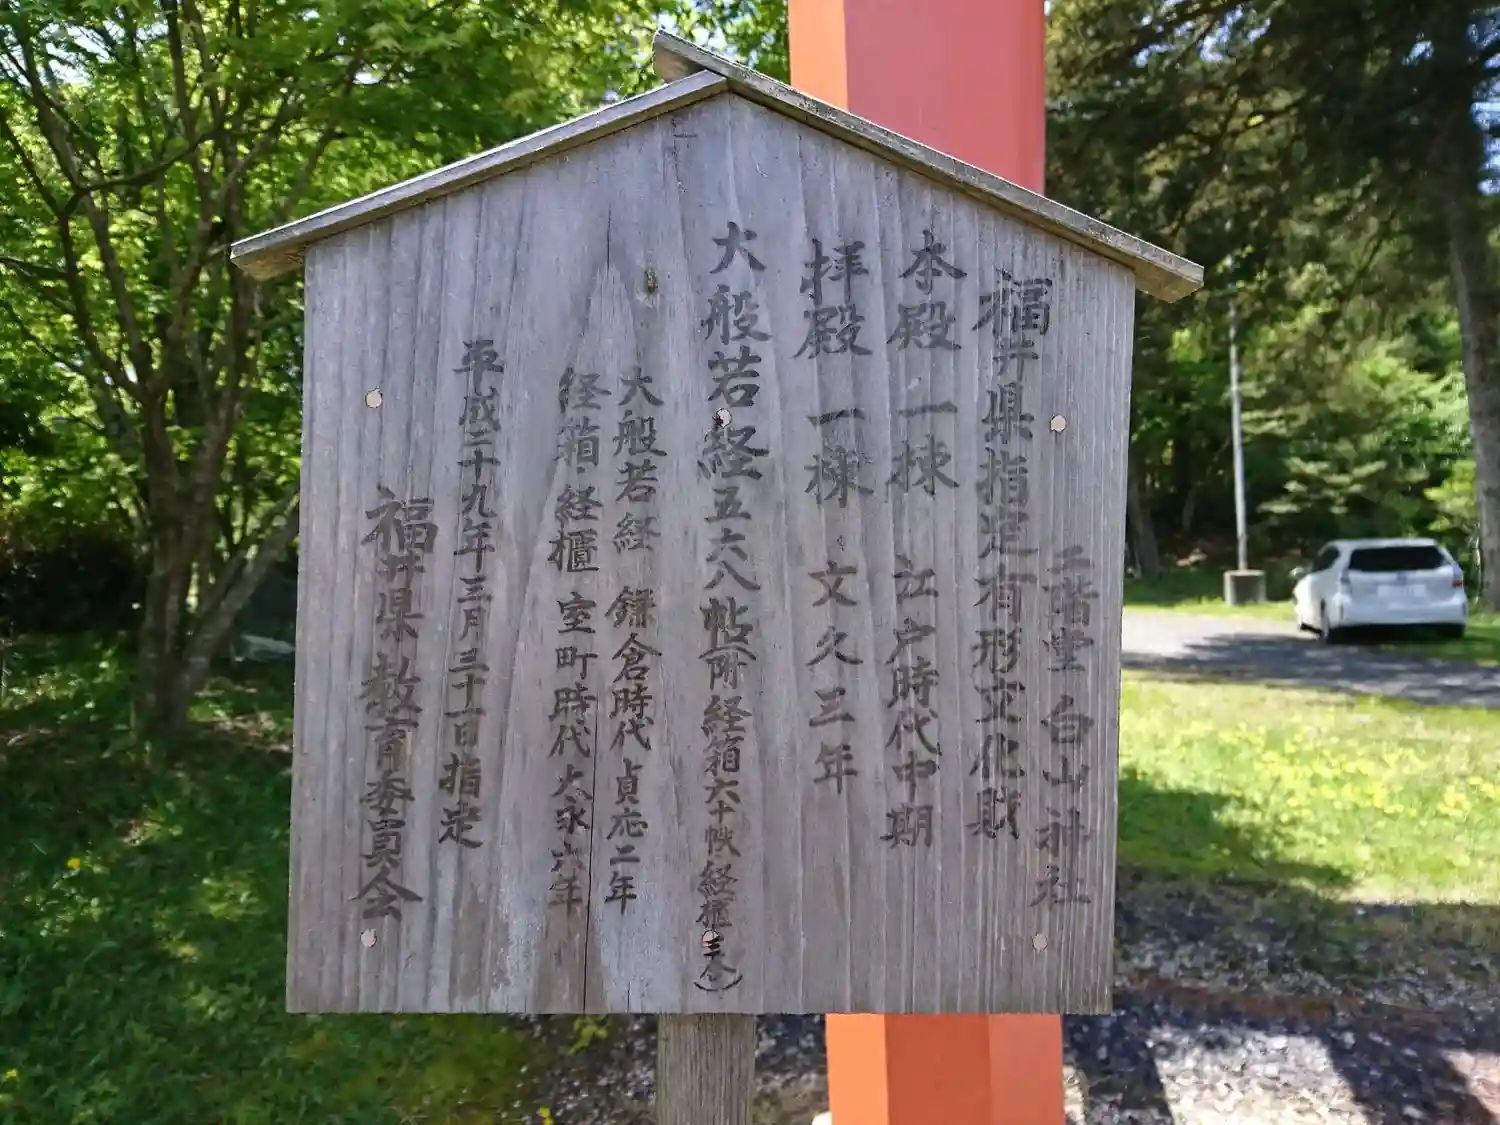 二階堂白山神社
福井県指定有形文化財
本殿 一棟 江戸時代中期
拝殿 一棟 文久三年
大般若経五六八帖(附経箱六十帙・経櫃三合)
大般若経 鎌倉時代 貞応二年
経箱・経櫃 室町時代大永六年
平成二十九年三月三十一日指定
福井県教育委員会